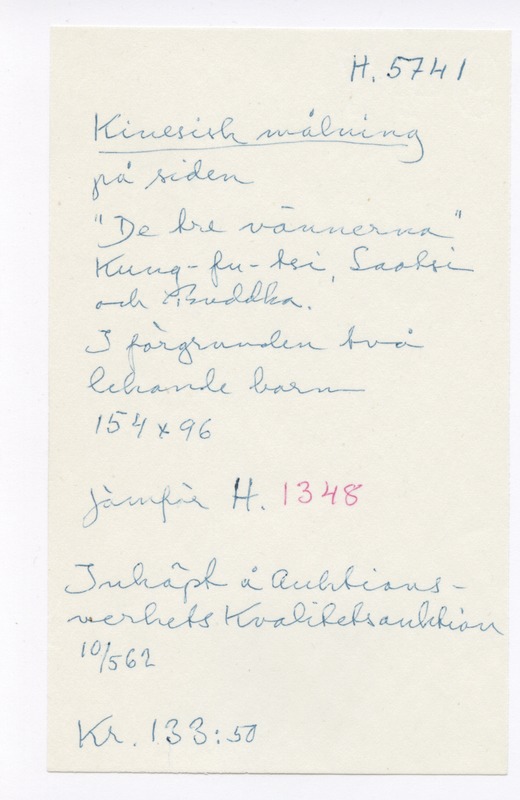 H. 5741
Kinesisk målning
på siden
"De tre vännerna"
Kung-fu-tsi, Laotsi
och Buddha.
I förgrunden två
lekande barn
154 x 96
Jämför H. 1348
Inköpt å Auktions-
verkets Kvalitetsauktion
10/5 62
Kr. 133:50